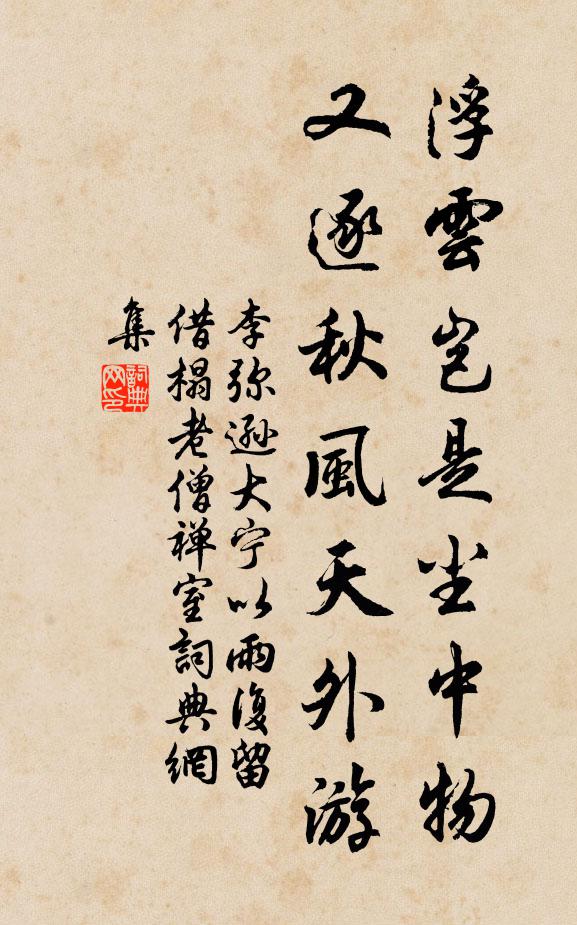 浮雲岂是尘中物
又逐秋風天外游
李弥遜大宁以雨復留
借榻老僧禅室詞典網
集
詞典
网印